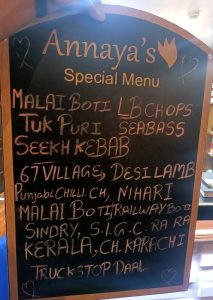 Annaya's
Special Menu
MALAI BOTI LB CHOPS
TUK PURI SEABASS
SEEKH KEBAB
67 VILLAGE, DESI LAMB
Punjabi CHILLI CH, NIHARI
MALAI BOTI/RAILWAY BOTI
SINDRY, S.I.G.C. RA RA
KERALA, CH. KARACHI
TRUCK STOP DAAL